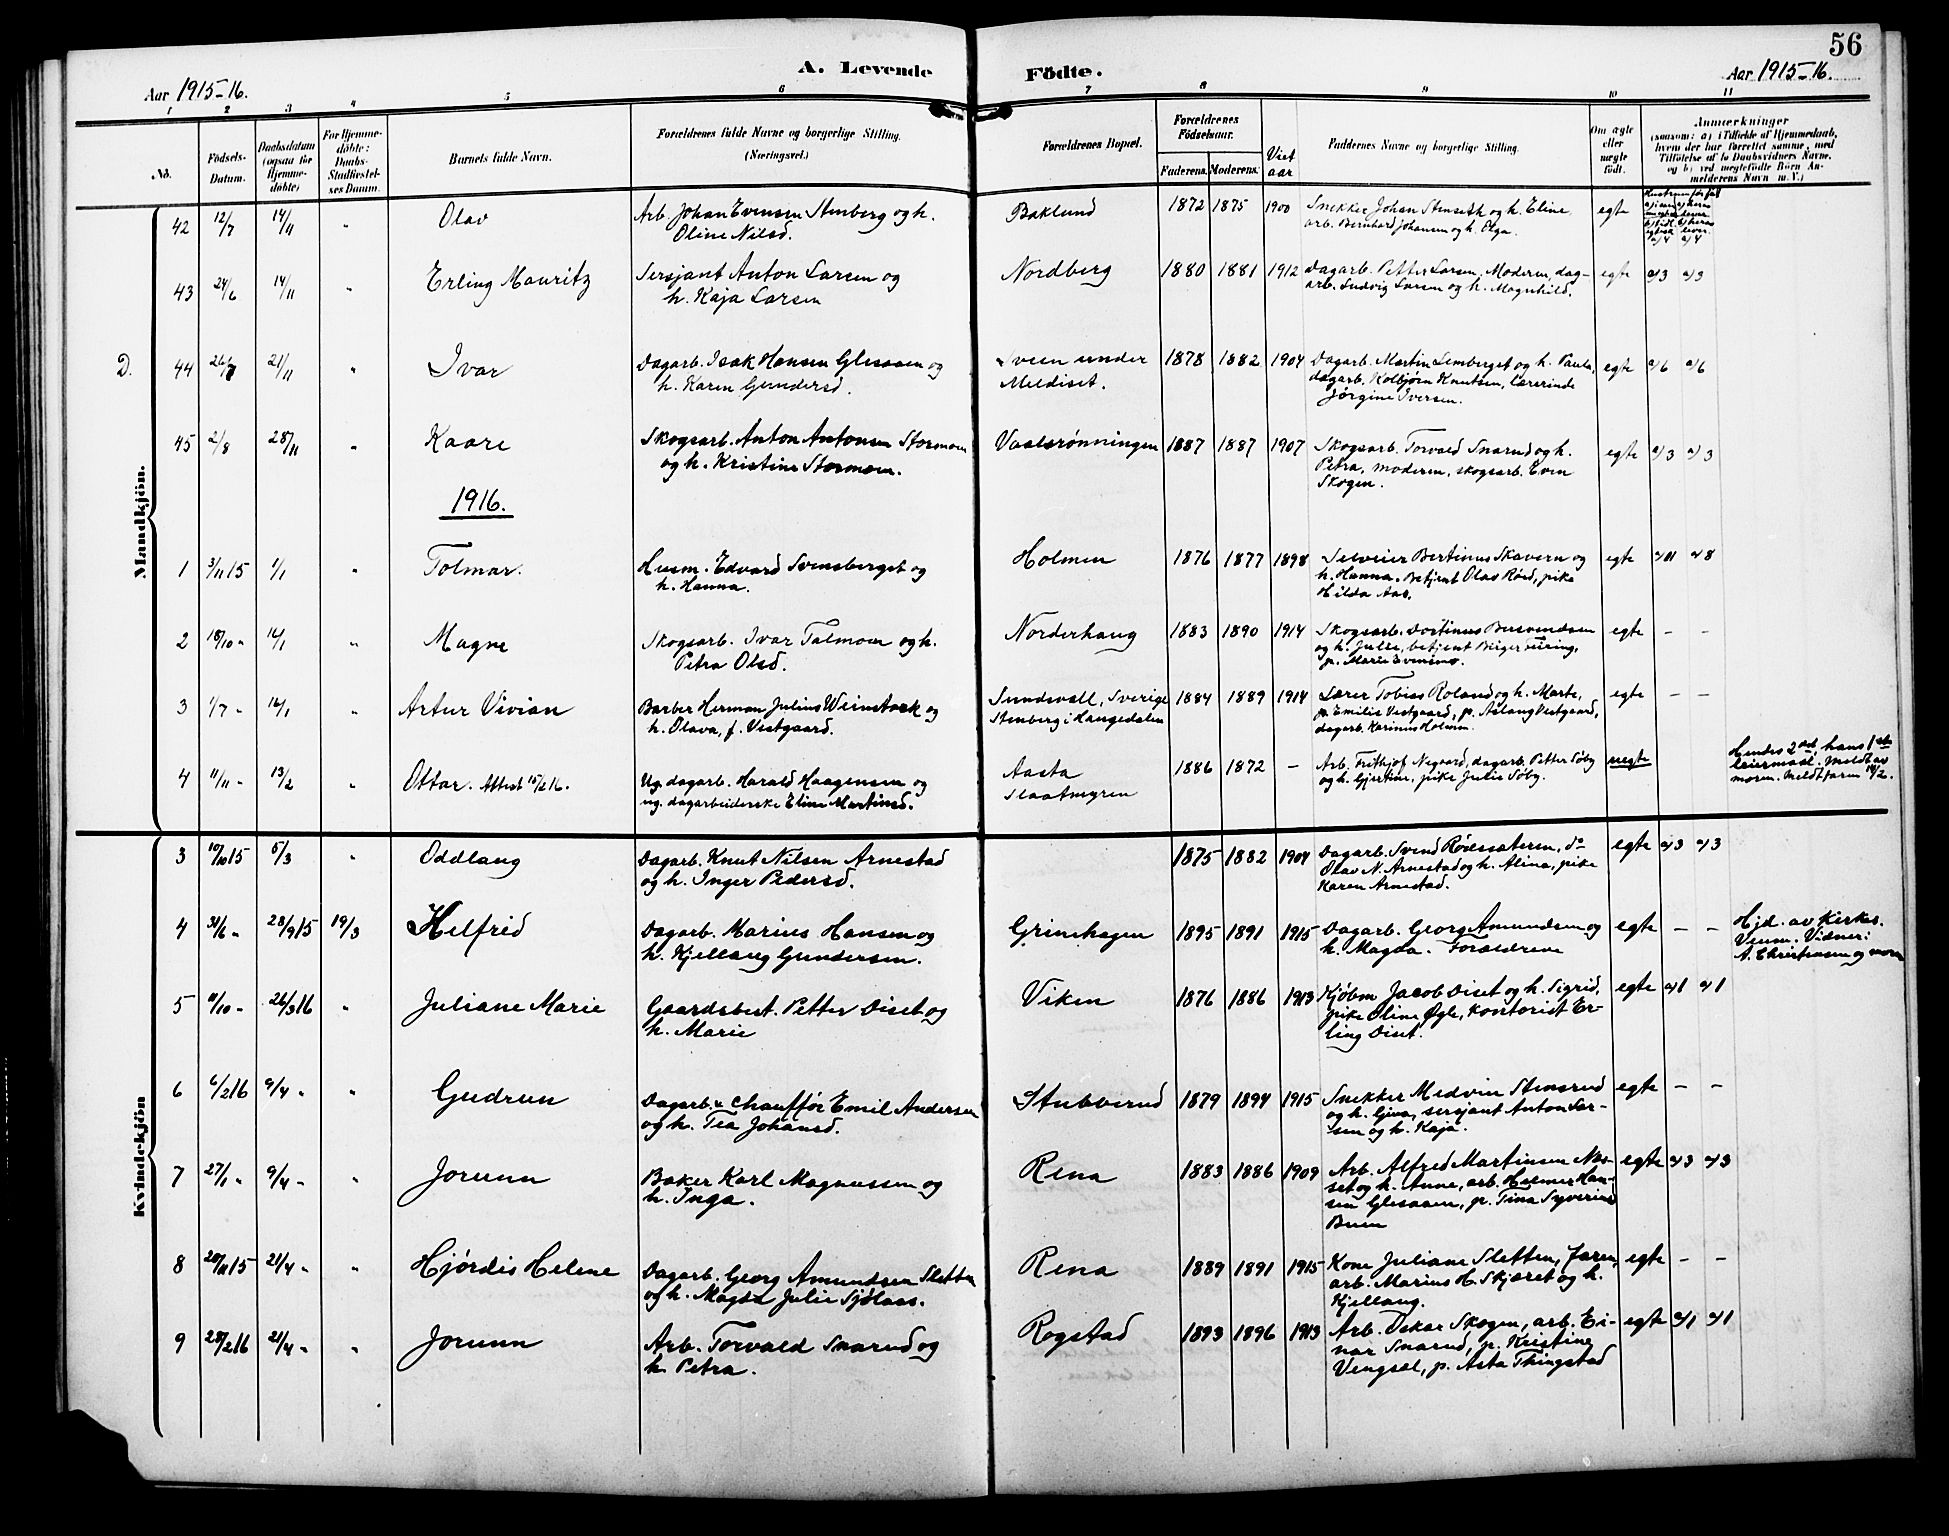 56
A. Levende Födte.
Aar 1915-16.
Aar 1915-16.
1 2 3 4 5 6 7 8 9 10 11
No.
Födsels-Datum.
Daabsdatum (ogsaa for Hjemme-döbte)
For Hjemme-döbte: Daabs-Stadfæstel-ses Datum.
Barnets fulde Navn.
Forældrenes fulde Navne og borgerlige Stilling. (Næringsvei.)
Forældrenes Bopæl.
Forældrenes Födselsaar.
Faderens. Moderens.
Viet aar
Faddernes Navne og borgerlige Stilling.
Om ægte eller uægte födt.
Anmærkninger
(saasom: a) i Tilfælde af Hjemmedaab, hvem der har forrettet samme, med Tilföielse af to Daabsvidners Navne, og b) ved uægtefödte Börn An-melderens Navn m. V.)
Mandkjön.
42 12/7 14/11 " Olav
Arb. Johan Evensen Stenberg og h.
Oline Nilsd.
Baklund 1872 1875 1900
Snekker Johan Stenseth og h. Eline,
arb. Bernhard Johansen og h. Olga.
egte
43 24/6 14/11 " Erling Mauritz
Sersjant Anton Larsen og
h. Kaja Larsen
Nordberg 1880 1881 1912
Dagarb. Petter Larsen, Moderen, dag-
arb. Ludvig Larsen og h. Magnhild.
egte a/3 a/3
D. 44 26/7 21/11 " Ivar
Dagarb. Isak Hansen Glesaaen og
h. Karen Gundersd.
Sveen under
Meldiset.
1878 1882 1904
Dagarb. Martin Lemberget og h. Paula,
dagarb. Kolbjørn Knutsen, lærerinde
Jørgine Iversen.
egte a/6 a/6
45 2/8 28/11 " Kaare
Skogsarb. Anton Antonsen Stormoen
og h. Kristine Stormoen.
Vaalsrønningen 1887 1887 1907
Skogsarb. Torvald Snarud og h.
Petra, moderen, skogsarb. Even
Skogen.
egte a/3 a/3
1916.
1 3/11 15 1/1 " Tolmar.
Husm. Edvard Svensberget og
h. Hanna.
Holmen 1876 1877 1898
Selveier Bertinus Skavern og
h. Hanna. Betjent Olav Røed, pike
Hilda Aas.
egte a/11 a/8
2 18/10 " 16/1 " Magne
Skogsarb. Ivar Talmoen og h.
Petra Olsd.
Norderhaug 1883 1890 1914
og h. Julie, betjent Birger
egte - -
3 1/7 " 16/1 " Artur Vivian
Barber Herman Julius Weinstock og
h. Olava, f. Vestgaard.
Sundsvall, Sverige
Stenberg i Haugedalen
1884 1889 1914
Lærer Tobias Roland og h. Marte,
p. Emilie Vestgaard, p. Aslaug Vestgaard,
dagarb. Karinus Holmen.
egte - -
4 11/11 " 13/2 " Ottar. Attest 15/2 16.
Ug. dagarb. Harald Haagensen og
ug. dagarbeiderske Eline Martinsd.
Aasta
Slaatmyren
1886 1872 -
Arb. Fritjof Negaard, dagarb. Petter Søby
og h. Gjertine, pike Julie Søby.
uegte
Hendes 2det, hans 1ste
leiermaal. Meldt av
moren. Meldt faren 14/2.
Kvindekjön
3 10/10 15 5/3 " Oddlaug
Dagarb. Knut Nilsen Arnestad
og h. Inger Pedersd.
1875 1882 1904
Dagarb. Svend Rødssæteren, do
Olav N. Arnestad og h. Alina, pike
Karen Arnestad.
egte a/3 a/3
4 31/6 " 28/9 15 19/3 Helfrid
Dagarb. Marius Hansen og
h. Kjellaug Gundersen.
Grinehagen 1895 1891 1915
Dagarb. Georg Amundsen og
h. Magda. Forældrene
egte - -
Hjd. av kirkes.
Veum. Vidner:
A. Christiansen og moren
5 11/10 " 26/3 16 " Juliane Marie
Gaardsbest. Petter Diset og
h. Marie
Viken 1876 1886 1913
Kjøbm Jacob Diset og h. Sigrid,
pike Oline Øgle, kontorist Er-
ling Diset.
egte a/1 a/1
6 6/2 16 9/4 " " Gudrun
Dagarb. & chauffør Emil Andersen
og h. Tea Johansd.
Stubberud 1879 1894 1915
Snekker Medvin Stensrud
og h. Gina, sersjant Anton Lar-
sen og h. Kaja.
egte - -
7 27/1 " 9/4 " " Jorunn
Baker Karl Magnussen og
h. Inga.
Rena 1883 1886 1909
Arb. Alfred Martinsen Næs-
set og h. Anne, arb. Helmer Han-
sen Glesaaen, p. Tina Syverine
Buen
egte a/3 a/3
8 20/11 15 21/4 " " Hjørdis Helene
Dagarb. Georg Amundsen Sletten
og h. Magda Julie Sjølaas.
Rena 1889 1891 1915
Kone Juliane Sletten, faren,
arb. Marius H. Skjæret og h.
Kjellaug.
egte - -
9 28/2 16 21/4 " " Jorunn
Arb. Torvald Snarud og
h. Petra.
Rogstad 1893 1896 1913
Arb. Oskar Skogen, arb. Ei-
nar Snarud, p. Kristine
Vengsal, p. Asta Thingstad
egte a/1 a/1